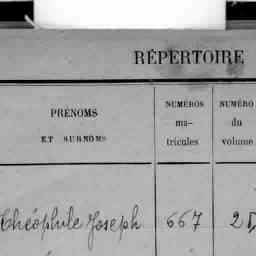 RÉPERTOIRE
PRÉNOMS
ET SURNOMS
NUMÉROS
ma-
tricules
NUMÉRO
du
volume
Théophile Joseph 667